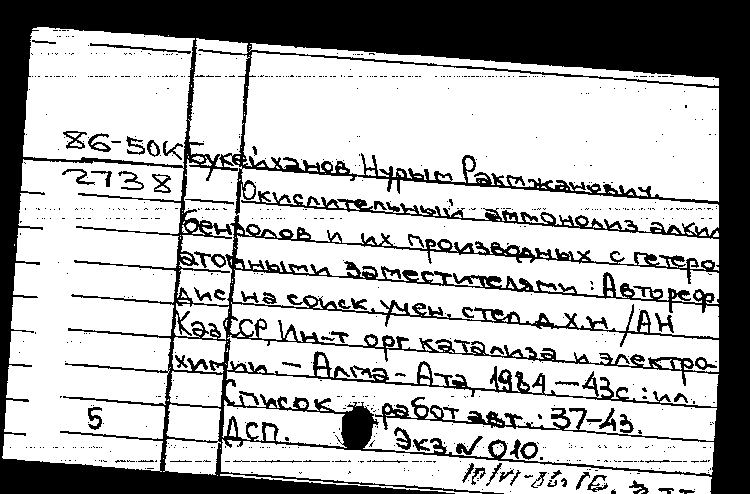 86-50К Букейханов, Нурым Рахмжанович.
2738 Окислительный аммонолиз алкил
бензолов и их производных с гетеро-
атомными заместителями : Автореф.
дис. на соиск. учен. степ. д. х. н. / АН
КазССР, Ин-т орг. катализа и электро-
химии. – Алма-Ата, 1984. – 43с. : ил.
Список работ авт.: 37-43.
5 ДСП. Экз. № 010.
10/VI-86.